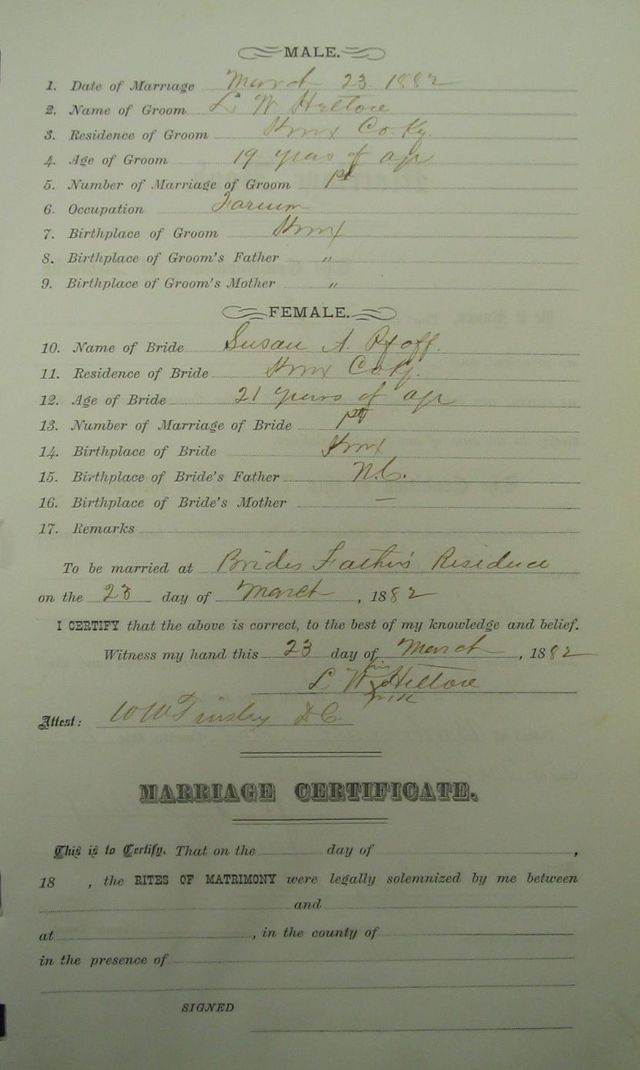 MALE.
1. Date of Marriage March 23. 1882
2. Name of Groom L. W.
3. Residence of Groom Knox Co. Ky.
4. Age of Groom 19 years of age
5. Number of Marriage of Groom 1st
6. Occupation
7. Birthplace of Groom Knox
8. Birthplace of Groom's Father "
9. Birthplace of Groom's Mother "
FEMALE.
10. Name of Bride Susan A.
11. Residence of Bride Knox Co. Ky.
12. Age of Bride 21 years of age
13. Number of Marriage of Bride 1st
14. Birthplace of Bride Knox
15. Birthplace of Bride's Father N.C.
16. Birthplace of Bride's Mother —
17. Remarks
To be married at Brides Father's Residence
on the 23 day of March, 1882
I CERTIFY that the above is correct, to the best of my knowledge and belief.
Witness my hand this 23 day of March, 1882
his
L. W. x
Attest: W W Tinsley D.C.
MARRIAGE CERTIFICATE.
This is to Certify, That on the day of ,
18 , the RITES OF MATRIMONY were legally solemnized by me between
and
at , in the county of
in the presence of
SIGNED